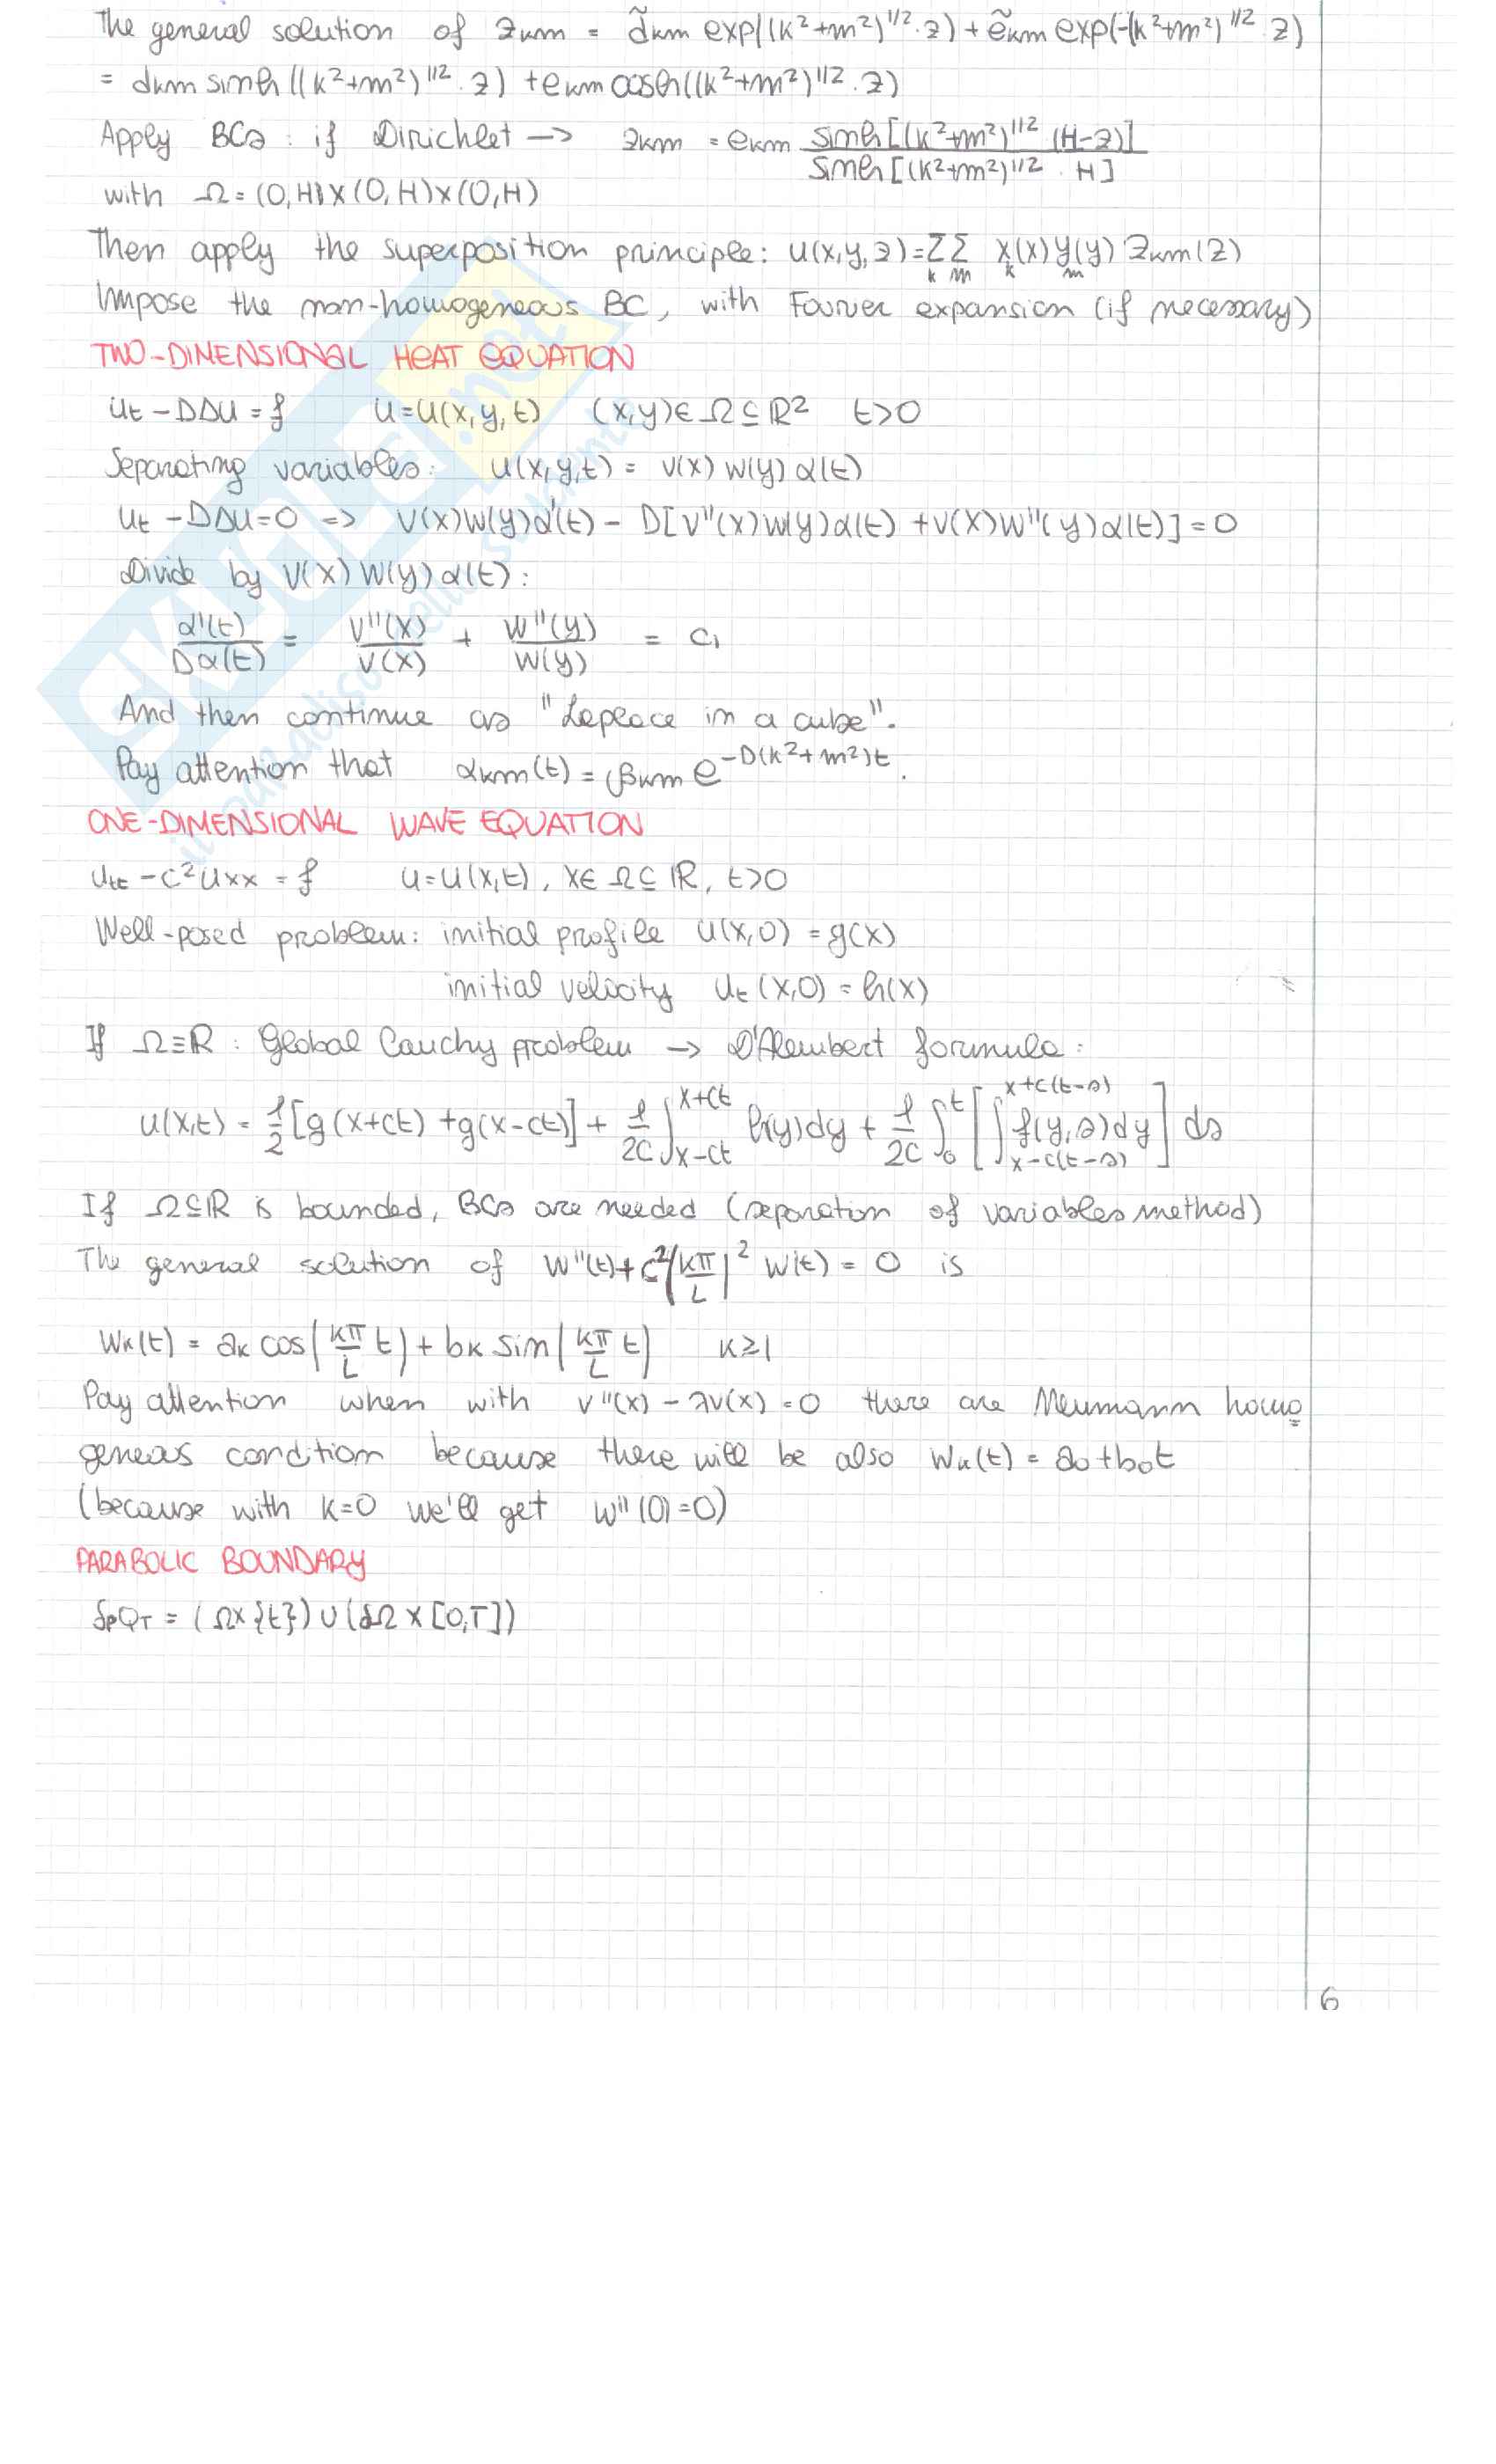 The general solution of zkm = d̃km exp((k²+m²)^1/2 · z) + ẽkm exp(-(k²+m²)^1/2 · z)
= dkm sinh((k²+m²)^1/2 · z) + ekm cosh((k²+m²)^1/2 · z)
Apply BCs: if Dirichlet → zkm = ekm sinh[(k²+m²)^1/2 (H-z)] / sinh[(k²+m²)^1/2 · H]
with Ω = (0,H)×(0,H)×(0,H)
Then apply the superposition principle: u(x,y,z) = Σk Σm Xk(x) Ym(y) Zkm(z)
Impose the non-homogeneous BC, with Fourier expansion (if necessary)
TWO-DIMENSIONAL HEAT EQUATION
ut - DΔu = f u = u(x,y,t) (x,y) ∈ Ω ⊆ ℝ² t>0
Separating variables: u(x,y,t) = v(x) w(y) α(t)
ut - DΔu = 0 => v(x)w(y)α'(t) - D[v''(x)w(y)α(t) + v(x)w''(y)α(t)] = 0
Divide by v(x) w(y) α(t):
α'(t)/Dα(t) = v''(x)/v(x) + w''(y)/w(y) = c₁
And then continue as "Laplace in a cube".
Pay attention that αkm(t) = βkm e^-D(k²+m²)t.
ONE-DIMENSIONAL WAVE EQUATION
utt - c²uxx = f u = u(x,t), x ∈ Ω ⊆ ℝ, t>0
Well-posed problem: initial profile u(x,0) = g(x)
initial velocity ut(x,0) = h(x)
If Ω ≡ ℝ : Global Cauchy problem → D'Alembert formula:
u(x,t) = 1/2 [g(x+ct) + g(x-ct)] + 1/2c ∫_{x-ct}^{x+ct} h(y)dy + 1/2c ∫_0^t [∫_{x-c(t-s)}^{x+c(t-s)} f(y,s)dy] ds
If Ω ⊆ ℝ is bounded, BCs are needed (separation of variables method)
The general solution of w''(t) + c²(kπ/L)² w(t) = 0 is
wk(t) = ak cos(kπ/L t) + bk sin(kπ/L t) k≥1
Pay attention when with v''(x) - λv(x) = 0 there are Neumann homo
geneous condition because there will be also wk(t) = a0 + b0t
(because with k=0 we'll get w''(0)=0)
PARABOLIC BOUNDARY
∂pQT = (Ω×{t}) ∪ (∂Ω × [0,T])
6
SKUOLA.net